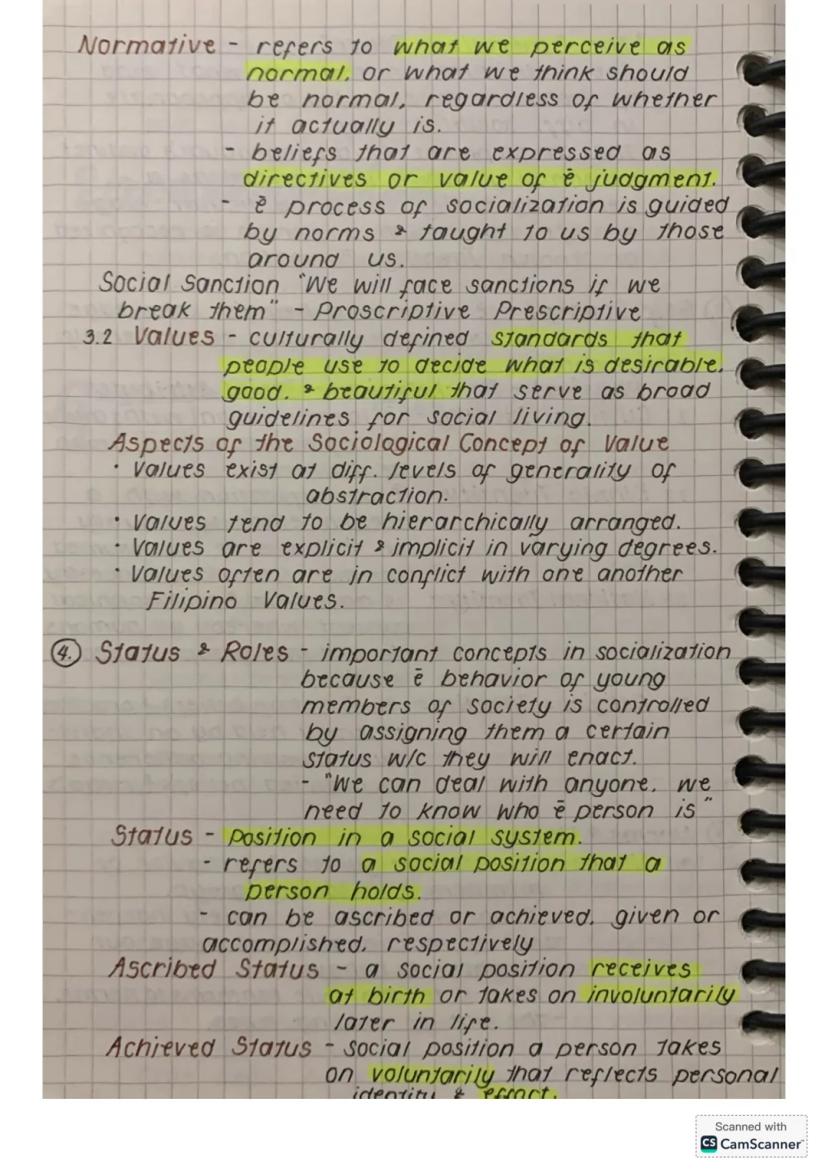 Normative - refers to what we perceive as
normal, or what we think should
be normal, regardless of whether
it actually is.
- beliefs that are expressed as
directives or value of ē judgment.
- ē process of socialization is guided
by norms & taught to us by those
around us.
Social Sanction "We will face sanctions if we
break them" - Proscriptive Prescriptive
3.2 Values - culturally defined standards that
people use to decide what is desirable,
good, & beautiful that serve as broad
guidelines for social living.
Aspects of the Sociological Concept of Value
• Values exist at diff. levels of generality of
abstraction.
• Values tend to be hierarchically arranged.
• Values are explicit & implicit in varying degrees.
• Values often are in conflict with one another
Filipino Values.
4. Status & Roles - important concepts in socialization
because ē behavior of young
members of society is controlled
by assigning them a certain
status w/c they will enact.
- "We can deal with anyone, we
need to know who ē person is"
Status - Position in a social system.
- refers to a social position that a
person holds.
- can be ascribed or achieved, given or
accomplished, respectively
Ascribed Status - a social position receives
at birth or takes on involuntarily
later in life.
Achieved Status - social position a person takes
on voluntarily that reflects personal
identity & effort.
Scanned with
CS CamScanner